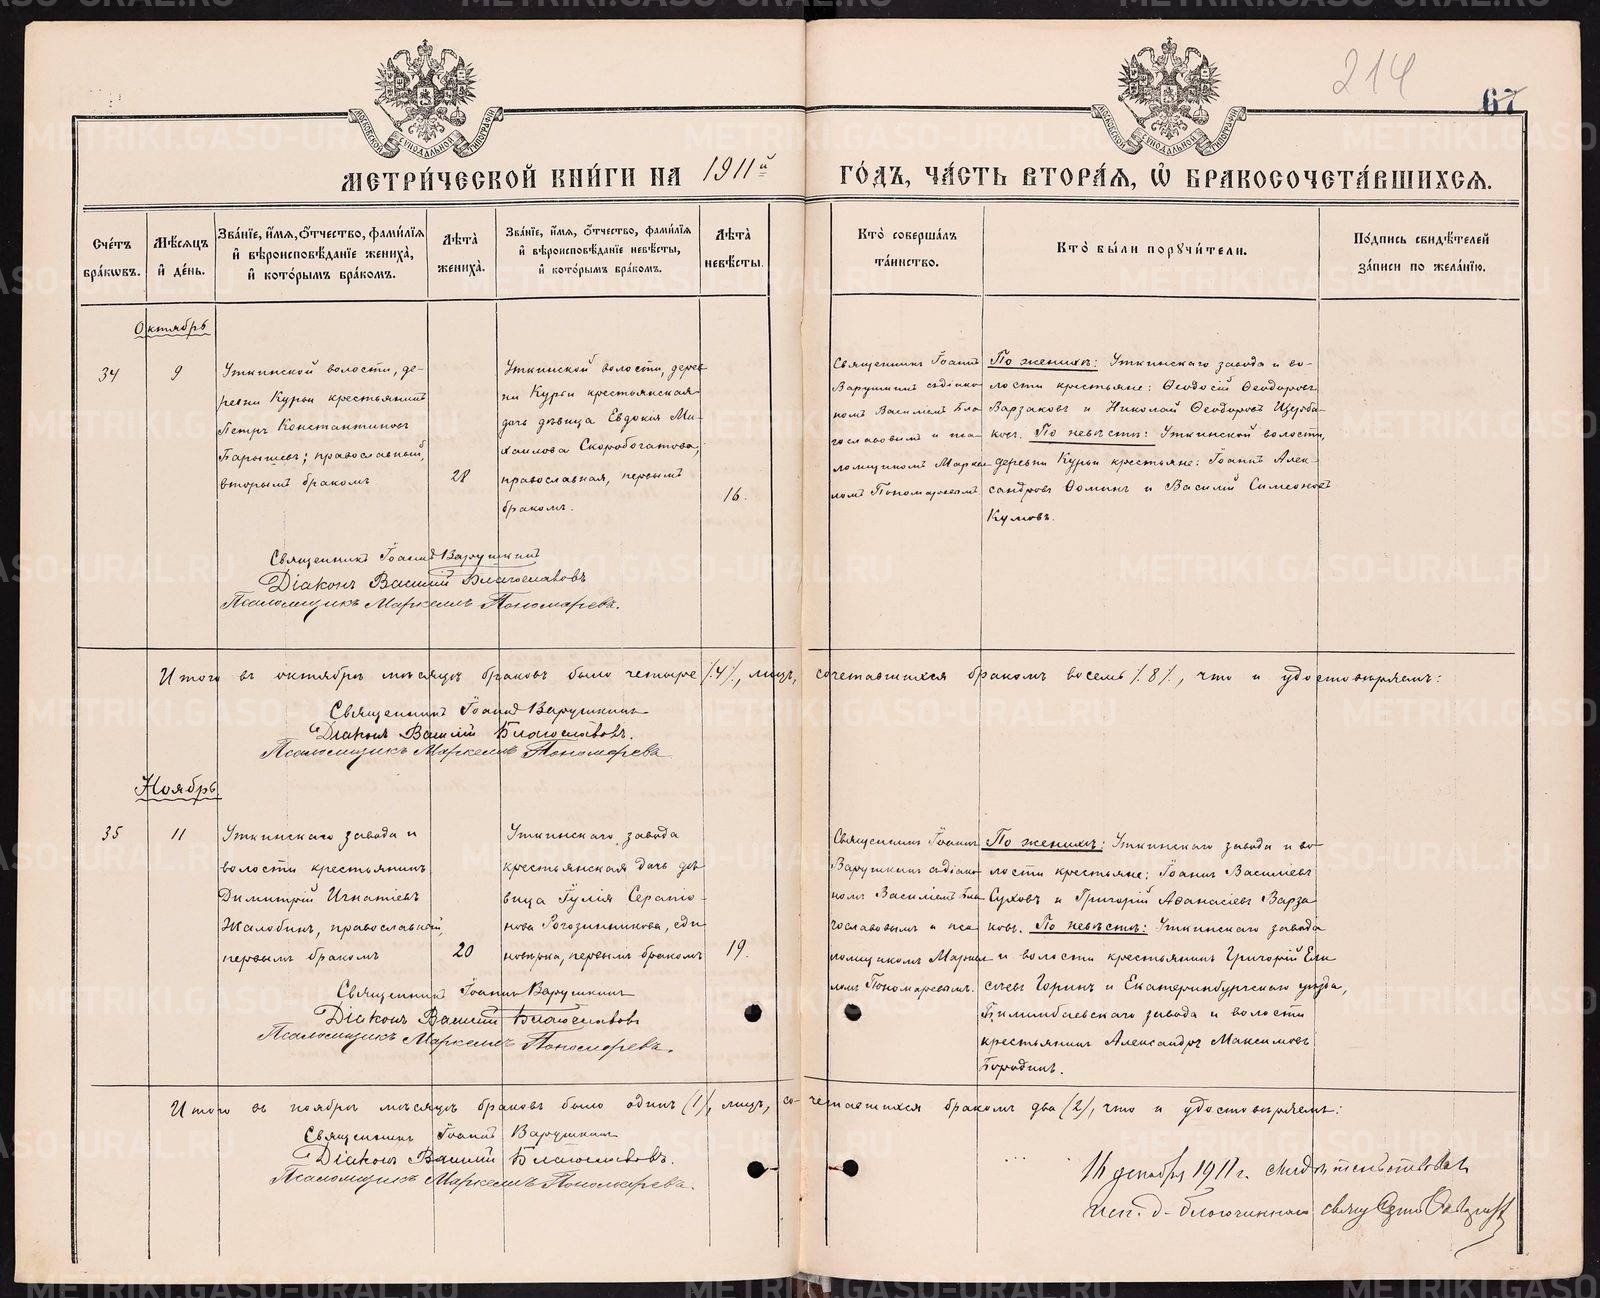 214
67
МЕТРИ́ЧЕСКОЙ КНИ́ГИ НА 1911й ГО́ДЪ, ЧА́СТЬ ВТОРА́Я, Ѽ БРАКОСОЧЕТА́ВШИХСЯ.
Сче́тъ бра́ковъ.
Мѣ́сяцъ и҆ де́нь.
Зва́нїе, и҆́мя, ѻ҆́тчество, фамилїя и҆ вѣроисповѣ́данїе жениха̀, и҆ кото́рымъ бра́комъ.
Лѣ́та жениха̀.
Зва́нїе, и҆́мя, ѻ҆́тчество, фамилїя и҆ вѣроисповѣ́данїе невѣ́сты, и҆ кото́рымъ бра́комъ.
Лѣ́та невѣ́сты.
Кто̀ соверша́лъ та́инство.
Кто̀ бы́ли порꙋчи́тели.
По́дпись свидѣ́телей за́писи по жела́нїю.
Октябрь
34
9
Уткинской волости, де-
ревни Курьи крестьянинъ
Петръ Константиновъ
Барышевъ; православный,
вторымъ бракомъ
28
Уткинской волости, дерев
ни Курьи крестьянская
дочь дѣвица Евдокія Ми-
хаилова Скоробогатова,
православная, первымъ
бракомъ.
16.
Священникъ Іоаннъ
Варушкинъ съ діако-
номъ Василіемъ Бла-
гославовымъ и пса-
ломщикомъ Марке-
ломъ Пономаревымъ
По женихѣ: Уткинскаго завода и во-
лости крестьяне: Ѳеодосій Ѳеодоровъ
Варзаковъ и Николай Ѳеодоровъ Щерба-
ковъ. По невѣстѣ: Уткинской волости,
деревни Курьи крестьяне: Іоаннъ Алек-
сандровъ Ѳоминъ и Василій Симеоновъ
Кумовъ.
Священникъ Іоаннъ Варушкинъ
Діаконъ Василій Благославовъ
Псаломщикъ Маркеллъ Пономаревъ.
Итого въ октябрѣ мѣсяцѣ браковъ было четыре /.4/., лицъ, сочетавшихся бракомъ восемь /.8/., что и удостовѣряемъ:
Священникъ Іоаннъ Варушкинъ
Діаконъ Василій Благославовъ.
Псаломщикъ Маркеллъ Пономаревъ
Ноябрь
35
11
Уткинскаго завода и
волости крестьянинъ
Димитрій Игнатіевъ
Жалобинъ, православный,
первымъ бракомъ
20
Уткинскаго завода
крестьянская дочь дѣ-
вица Іулія Серапіо-
нова Рогозинникова, еди
новѣрка, первымъ бракомъ
19.
Священникъ Іоаннъ
Варушкинъ съ діако-
номъ Василіемъ Бла-
гославовымъ и пса-
ломщикомъ Маркел-
ломъ Пономаревымъ.
По женихѣ: Уткинскаго завода и во-
лости крестьяне: Іоаннъ Василіевъ
Суховъ и Григорій Аѳанасіевъ Варза
ковъ. По невѣстѣ: Уткинскаго завода
и волости крестьянинъ Григорій Ели
сеевъ Горинъ и Екатеринбургскаго уѣзда,
Билимбаевскаго завода и волости
крестьянинъ Александръ Максимовъ
Бородинъ.
Священникъ Іоаннъ Варушкинъ
Діаконъ Василій Благославовъ
Псаломщикъ Маркеллъ Пономаревъ.
Итого въ ноябрѣ мѣсяцѣ браковъ было одинъ (1), лицъ, сочетавшихся бракомъ два (2), что и удостовѣряемъ:
Священникъ Іоаннъ Варушкинъ
Діаконъ Василій Благославовъ.
Псаломщикъ Маркеллъ Пономаревъ.
16 декабря 1911 г. свидѣтельствовалъ
исп. д. благочиннаго свящ